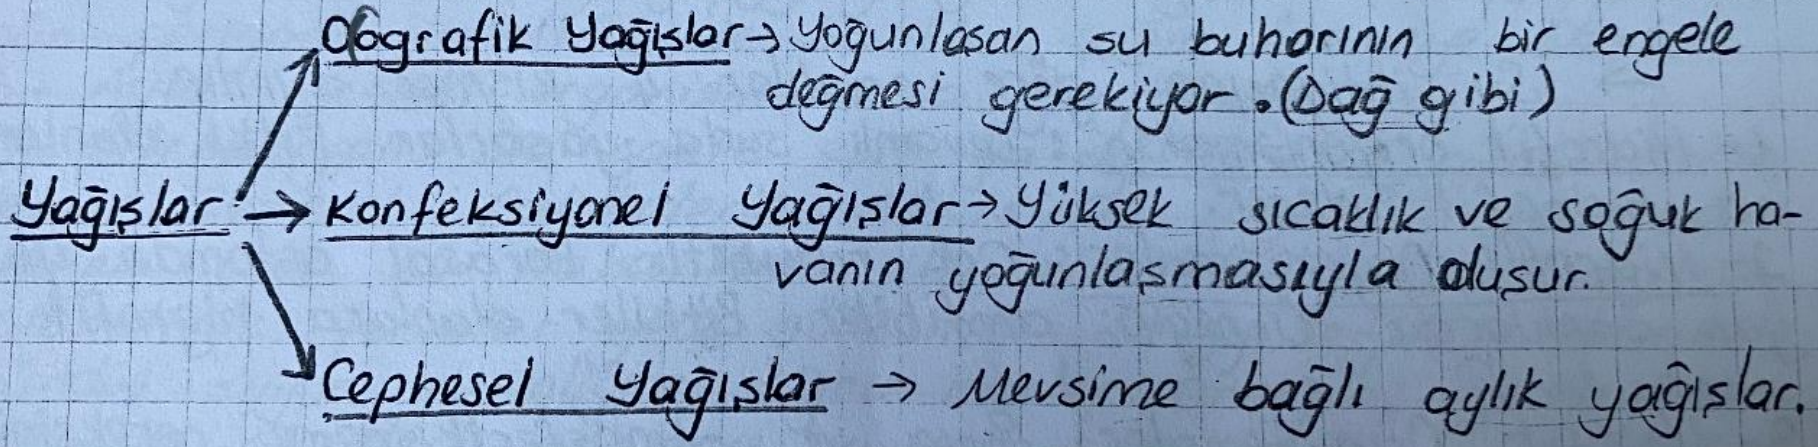 Orografik Yağışlar → Yoğunlaşan su buharının bir engele
değmesi gerekiyor. (Dağ gibi)
Yağışlar: → Konfeksiyonel Yağışlar → Yüksek sıcaklık ve soğuk ha-
vanın yoğunlaşmasıyla oluşur.
Cephesel Yağışlar → Mevsime bağlı aylık yağışlar.